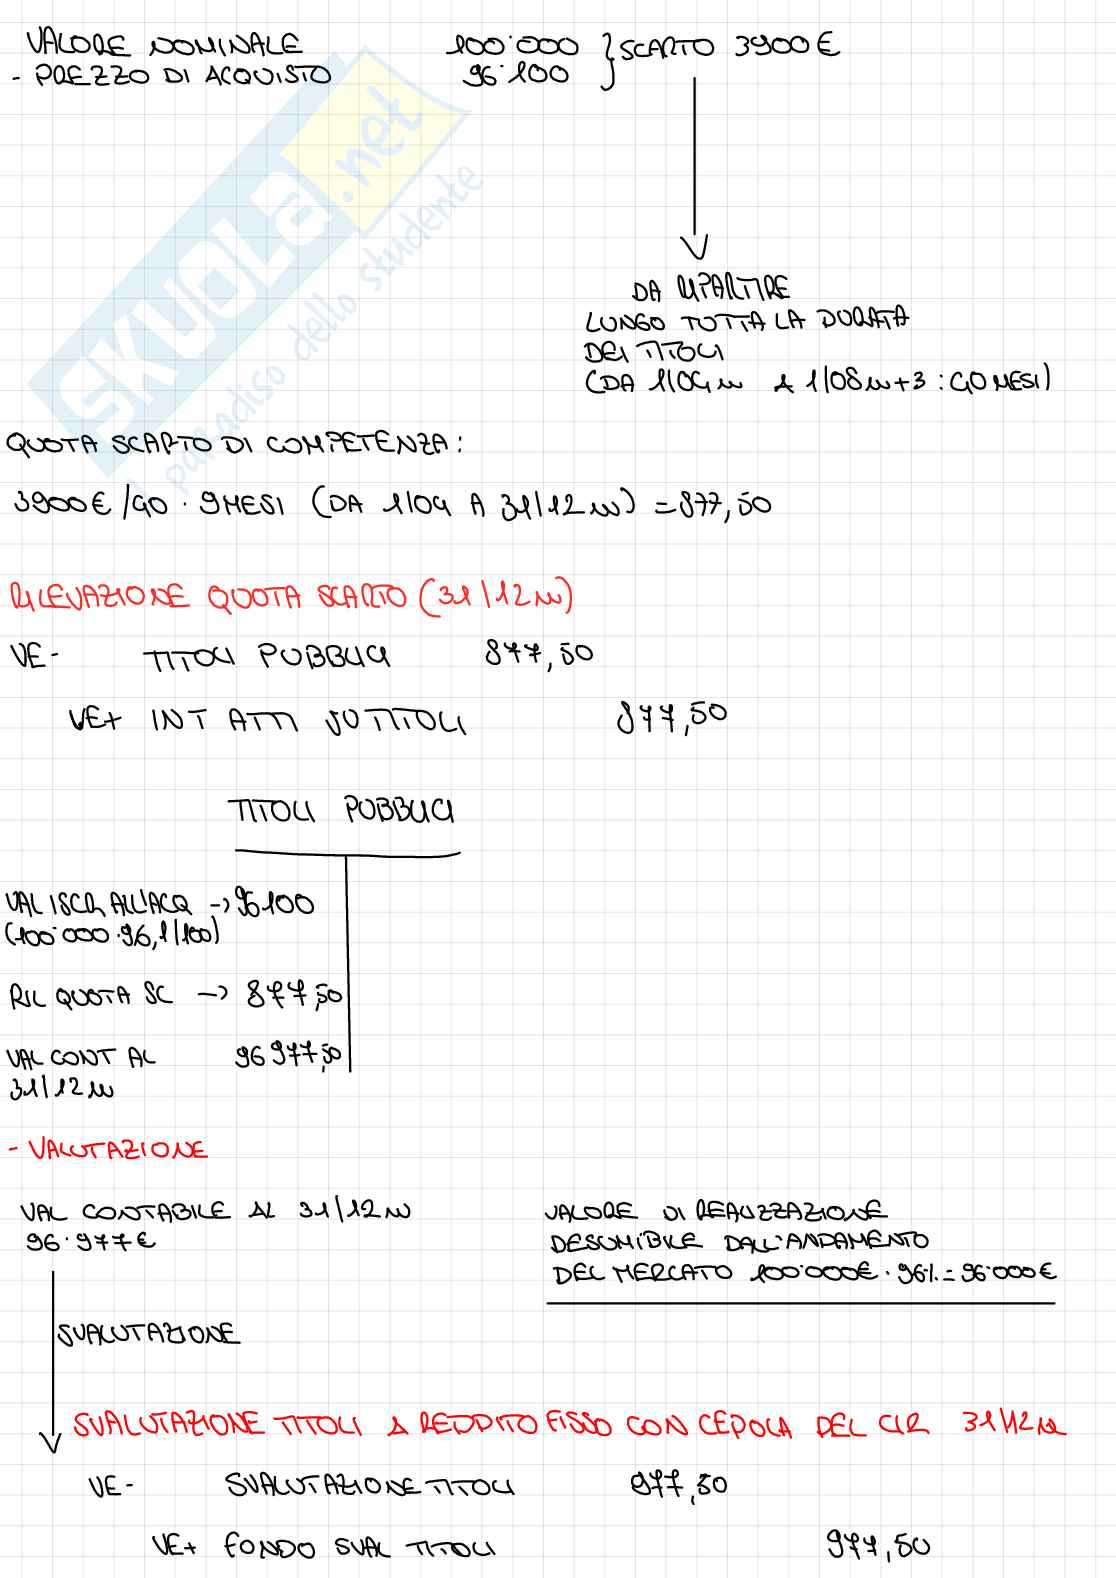 VALORE NOMINALE 100'000 } SCARTO 3900€
- PREZZO DI ACQUISTO 96'100
DA RIPARTIRE
LUNGO TUTTA LA DURATA
DEI TITOLI
(DA 1/04 N A 1/08 N+3 : 40 MESI)
QUOTA SCARTO DI COMPETENZA:
3900€/40 · 9 MESI (DA 1/04 A 31/12 N) = 877,50
RILEVAZIONE QUOTA SCARTO (31/12 N)
VE- TITOLI PUBBLICI 877,50
VE+ INT ATTI SU TITOLI 877,50
TITOLI PUBBLICI
VAL ISCR ALL'ACQ -> 96100
(100'000·96,1/100)
RIL QUOTA SC -> 877,50
VAL CONT AL 96977,50
31/12 N
- VALUTAZIONE
VAL CONTABILE AL 31/12 N
96·977€
VALORE DI REALIZZAZIONE
DESUMIBILE DALL'ANDAMENTO
DEL MERCATO 100'000€·96%=96'000€
SVALUTAZIONE
SVALUTAZIONE TITOLI A REDDITO FISSO CON CEDOLA DEL CIR 31/12 N
VE- SVALUTAZIONE TITOLI 977,50
VE+ FONDO SVAL TITOLI 977,50
SKUOLa.net
il paradiso dello studente